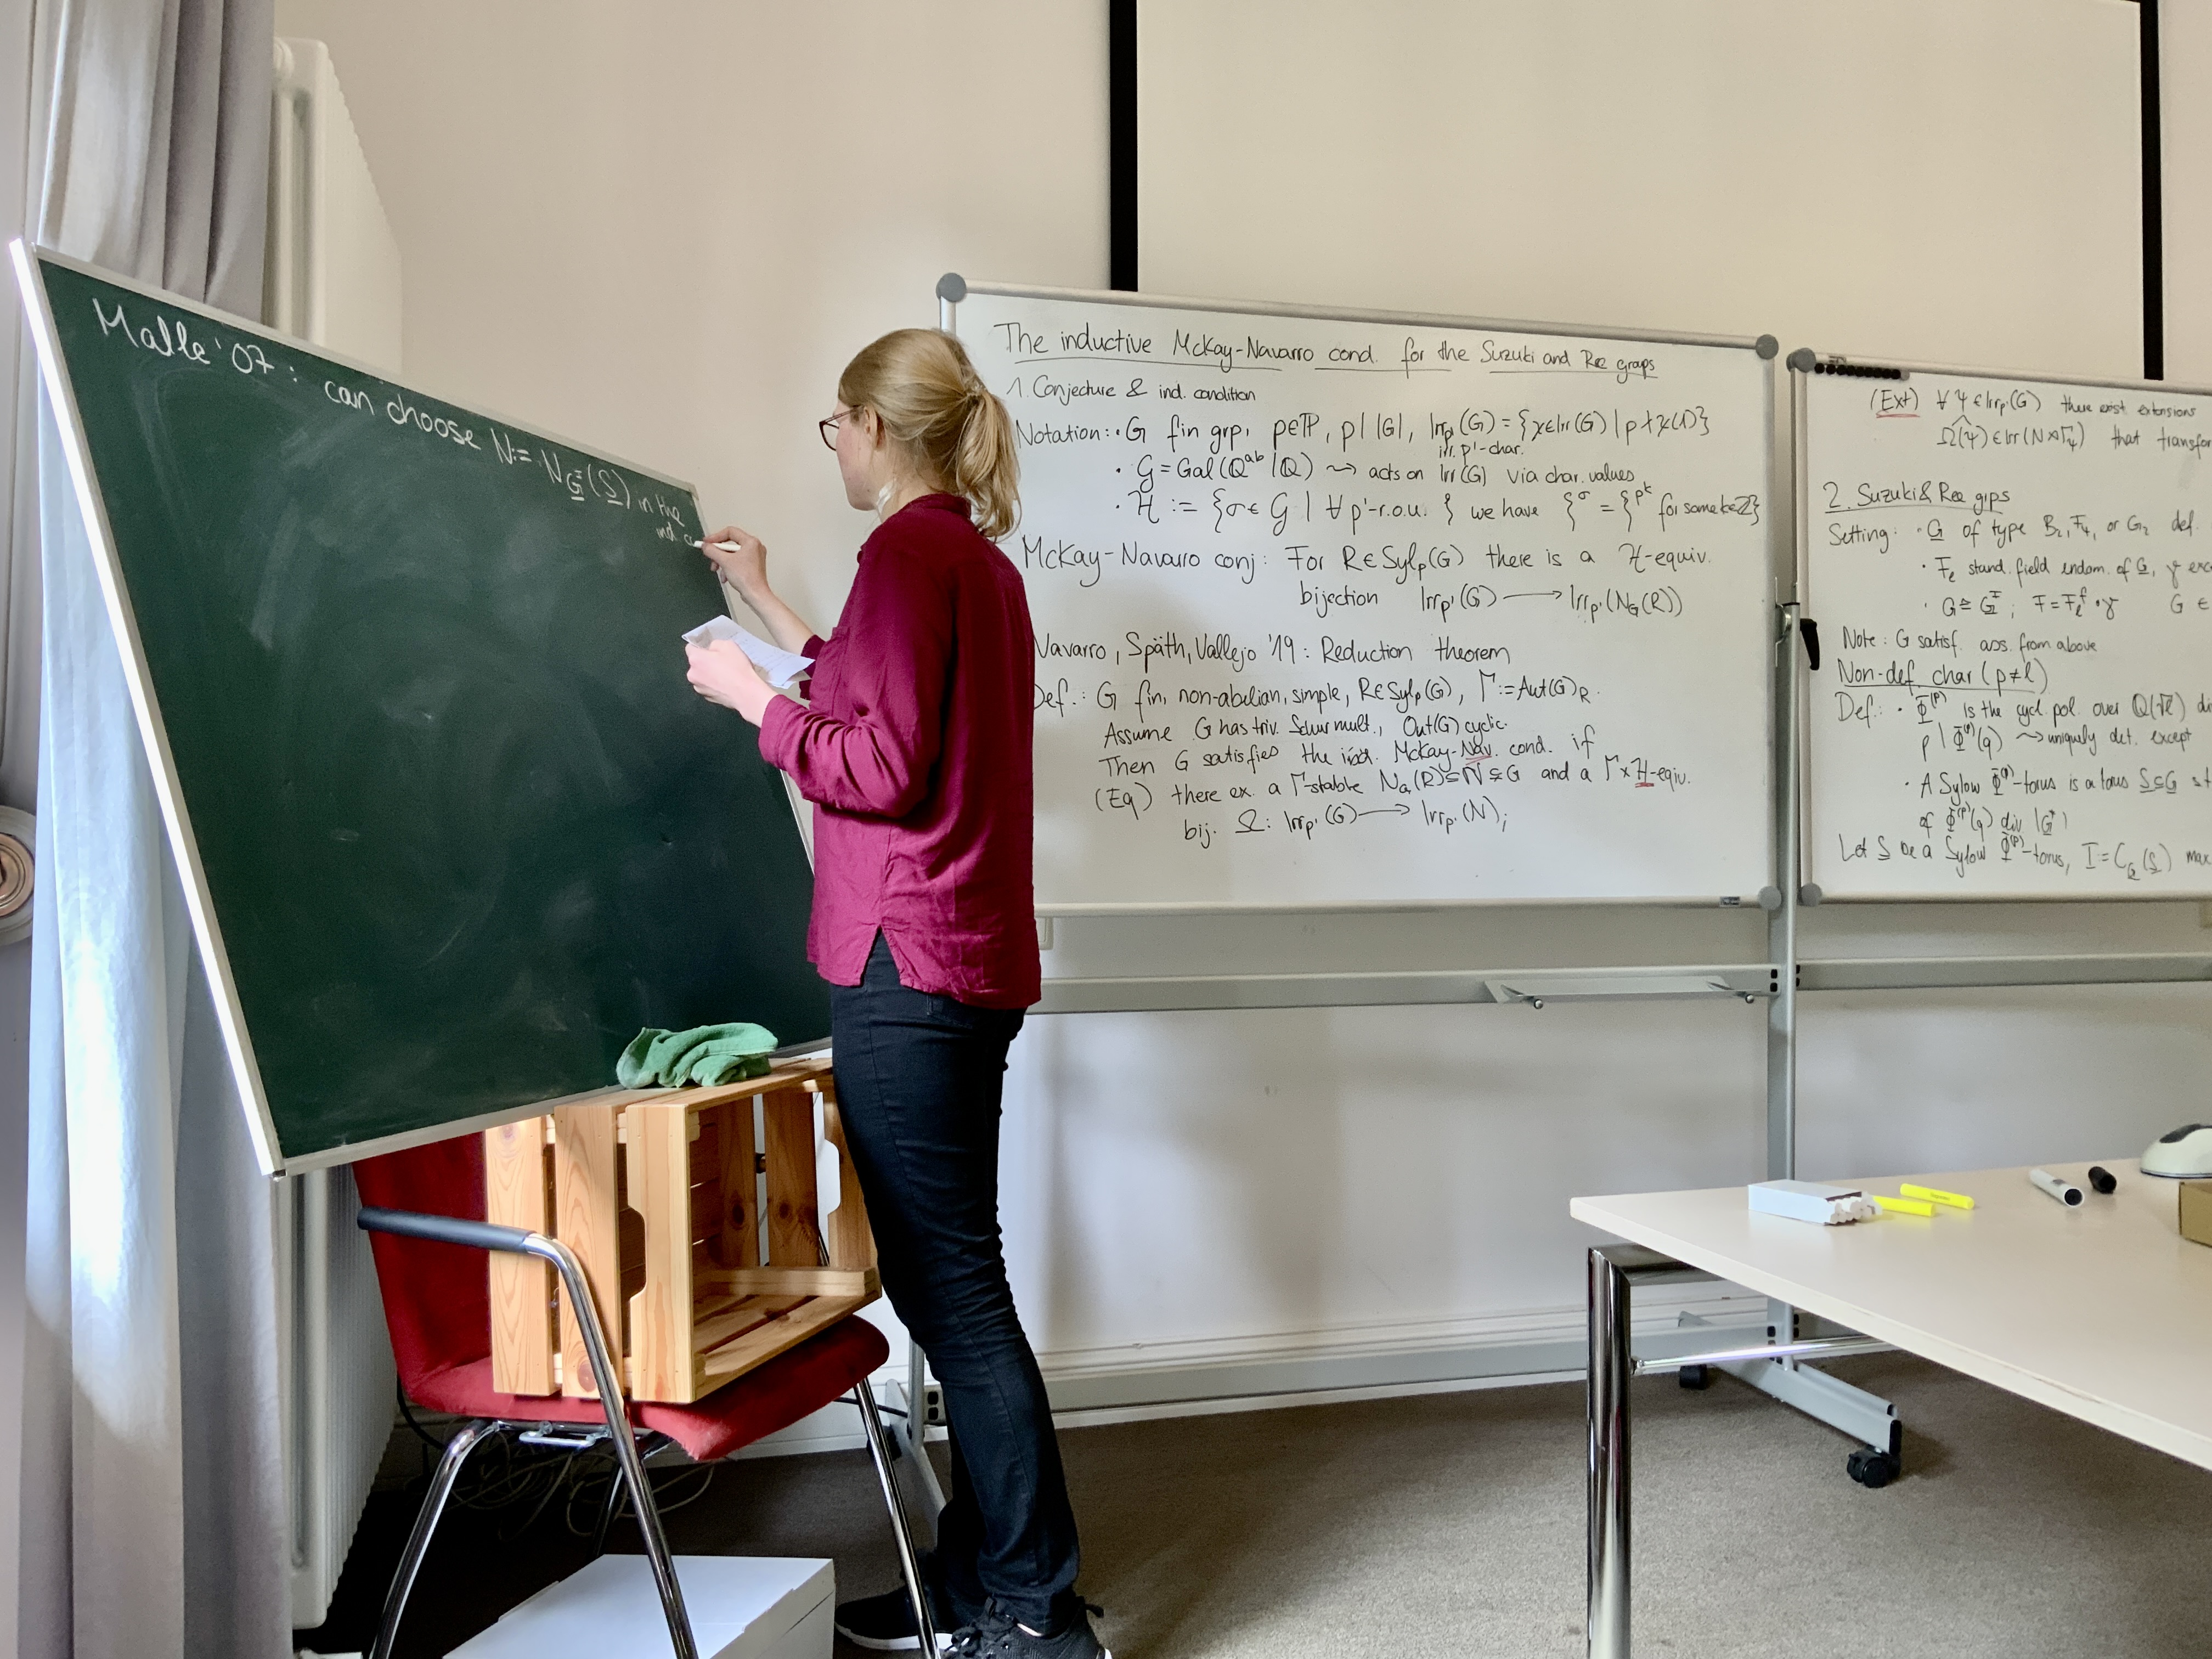 Malle '07: can choose N:= N_{G^F}(S) in the
ind. c
The inductive McKay-Navarro cond. for the Suzuki and Ree groups
1. Conjecture & ind. condition
Notation: · G fin grp, p∈ℙ, p | |G|, Irr_{p'}(G) = {χ∈Irr(G) | p ∤ χ(1)}
irr. p'-char.
· 𝒢 = Gal(ℚ^{ab} | ℚ) ⇝ acts on Irr(G) via char. values
· ℋ := {σ∈𝒢 | ∀ p'-r.o.u. ζ we have ζ^σ = ζ^{p^k} for some k∈ℤ}
McKay-Navarro conj: For R∈Syl_p(G) there is a ℋ-equiv.
bijection Irr_{p'}(G) ⟶ Irr_{p'}(N_G(R))
Navarro, Späth, Vallejo '19: Reduction theorem
Def.: G fin, non-abelian, simple, R∈Syl_p(G), Γ:= Aut(G)_R.
Assume G has triv. Schur mult., Out(G) cyclic.
Then G satisfies the ind. McKay-Nav. cond. if
(Eq) there ex. a Γ-stable N_G(R)⊆N⊊G and a Γ×ℋ-equiv.
bij. Ω: Irr_{p'}(G) ⟶ Irr_{p'}(N);
(Ext) ∀ ψ∈Irr_{p'}(G) there exist extensions
Ω(ψ)∈Irr(N⋊Γ_ψ) that transfor
2. Suzuki & Ree grps
Setting: · G of type B₂, F₄, or G₂ def.
· F_ℓ stand. field endom. of G, γ exc
· G ≅ G^F, F = F_ℓ^f ∘ γ G ∈
Note: G satisf. ass. from above
Non-def. char (p≠ℓ)
Def.: · Φ^{(p)} is the cycl. pol. over ℚ(√ℓ) di
p | Φ^{(p)}(q) ⇝ uniquely det. except
· A Sylow Φ^{(p)}-torus is a torus S⊆G st
of Φ^{(p)}(q) div |G^F|
Let S be a Sylow Φ^{(p)}-torus, T:= C_G(S) max